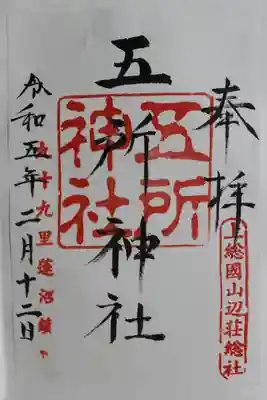 奉拝
上総國山辺荘総社
五所神社
五所神社
令和五年二月十二日
九十九里蓮沼鎮守